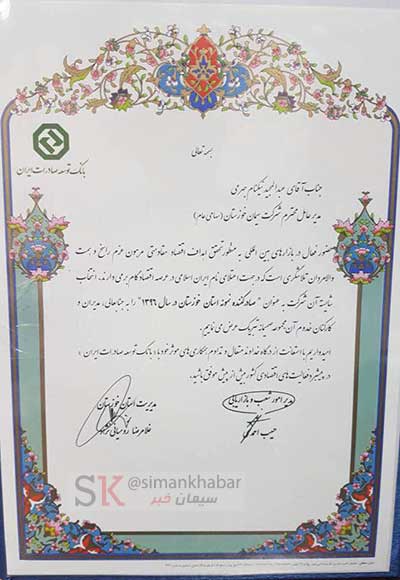 بسمه تعالی
بانک توسعه صادرات ایران
جناب آقای عبدالمجید نیکنام جهرمی
مدیر عامل محترم شرکت سیمان خوزستان (سهامی عام)
حضور فعال در بازارهای بین المللی به منظور تحقق اهداف اقتصاد مقاومتی مرهون عزم راسخ و همت
والا مردان تلاشگری است که در جهت اعتلای نام ایران اسلامی در عرصه اقتصاد گام بر می دارند، انتخاب
شایسته آن شرکت به عنوان "صادرکننده نمونه استان خوزستان در سال ۱۳۹۶" را به جنابعالی، مدیران و
کارکنان خدوم آن مجموعه صمیمانه تبریک عرض می نماییم.
امیدواریم با استعانت از درگاه خداوند متعال و تداوم همکاری های موثر خود با (بانک توسعه صادرات ایران)
در پیشبرد فعالیت های اقتصادی کشور بیش از پیش موفق باشید.
مدیر امور شعب و بازاریابی
حبیب احمد
مدیریت استان خوزستان
غلامرضا
SK @simankhabar
سیمان خبر